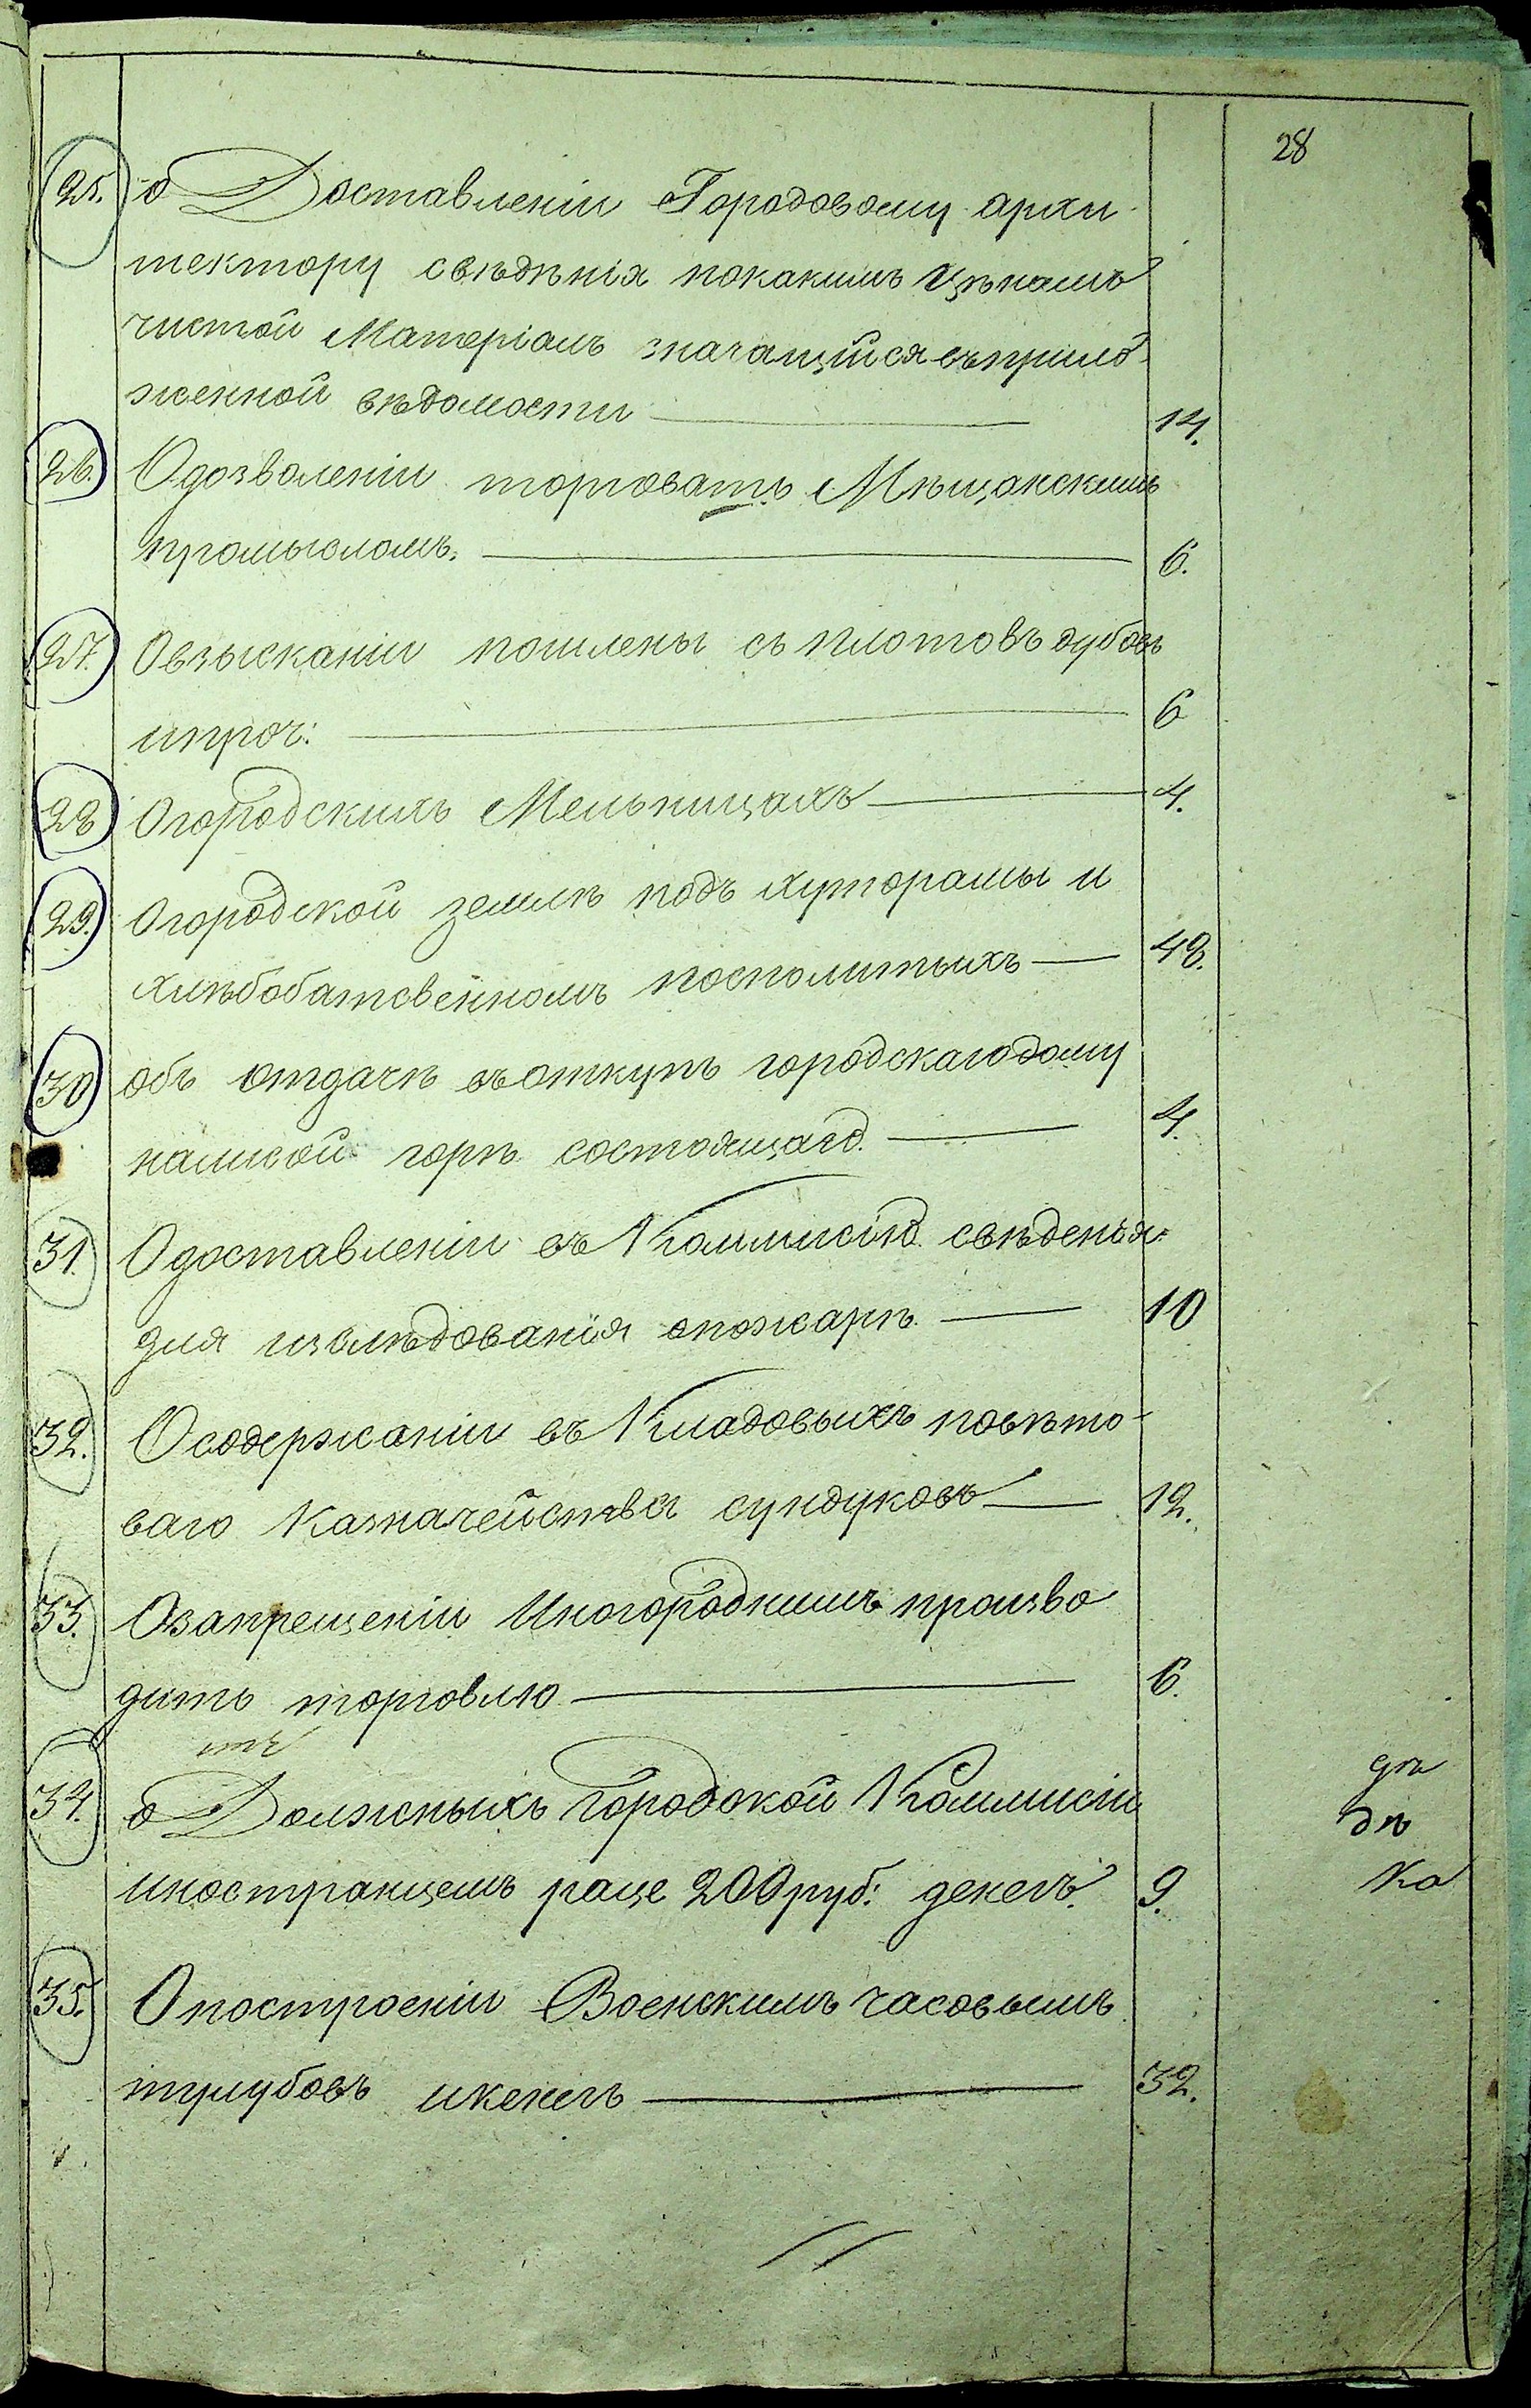 28
25. о Доставленіи Городовому архи
тектору свѣдѣнія покакимъ цѣнамъ
чистой Матеріалъ значащійся въприло
женной вѣдомости 14.
26. Одозволеніи торговать Мѣщанскимъ
промысломъ. 6.
27. Овзысканіи пошлены съ плотовъ дубовъ
ипроч: 6
28 Огородскихъ Мельницахъ 4.
29. Огородской землѣ подъ хуторамы и
посполитыхъ 48.
30 объ отдачѣ въоткупъ городскагодому
налисой горѣ состоящаго. 4.
31. Одоставленіи въ Коммисію свѣденія
для изслѣдованія опожарѣ. 10
32. Осодержаніи въ Кладовыхъ повѣто-
ваго Казначейства сундуковъ 12.
33. Озапрещеніи Иногороднимъ произво
дить торговлю 6.
34. о Должныхъ Городской Коммисіи
иностранцемъ раце 200 руб: денегъ. 9.
дѣ
дѣ
ка
35. Опостроеніи Военскимъ часовымъ
тулубовъ икенегъ 32.